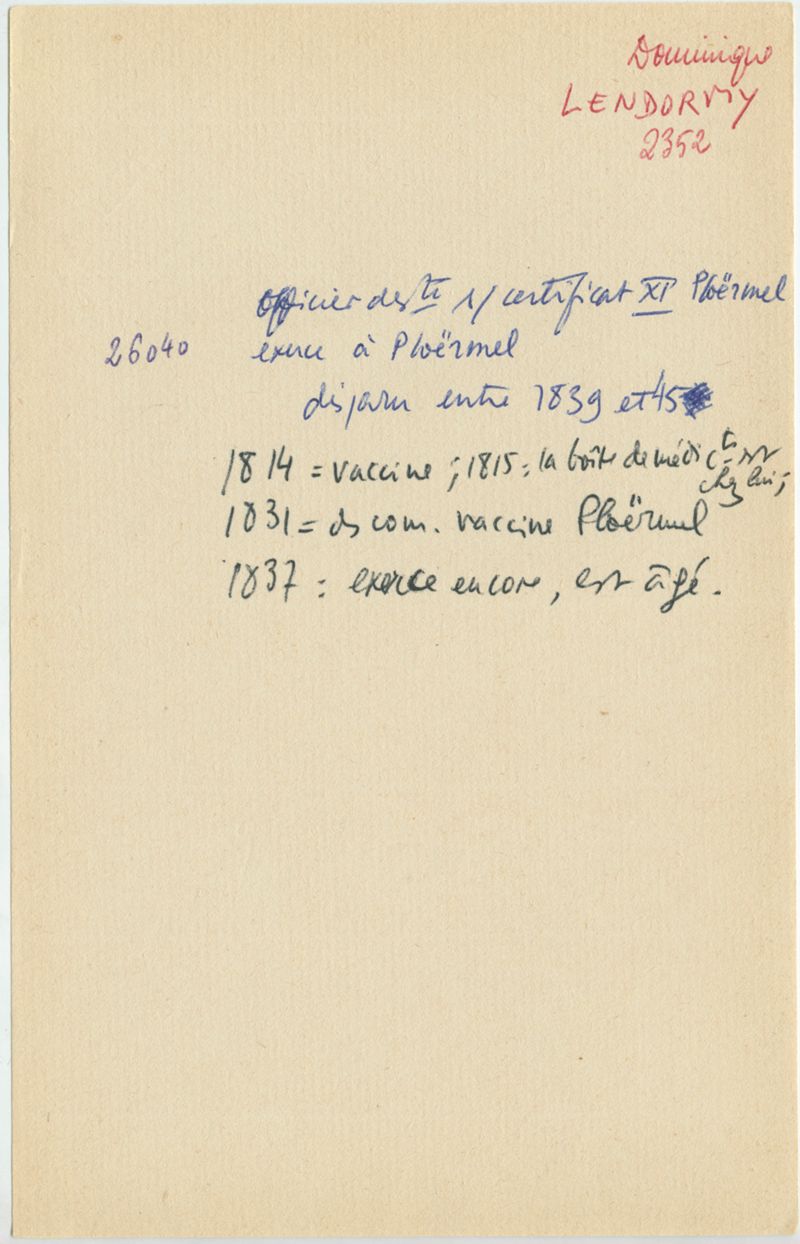 Dominique
LENDORMY
2352
officier de s té s/ certificat XI Ploërmel
26040 exerce à Ploërmel
disparu entre 1839 et 45
1814 = vaccine ; 1815 : la boîte de médic ts est
chez lui ;
1831 = ds com. vaccine Ploërmel
1837 : exerce encore, est âgé.